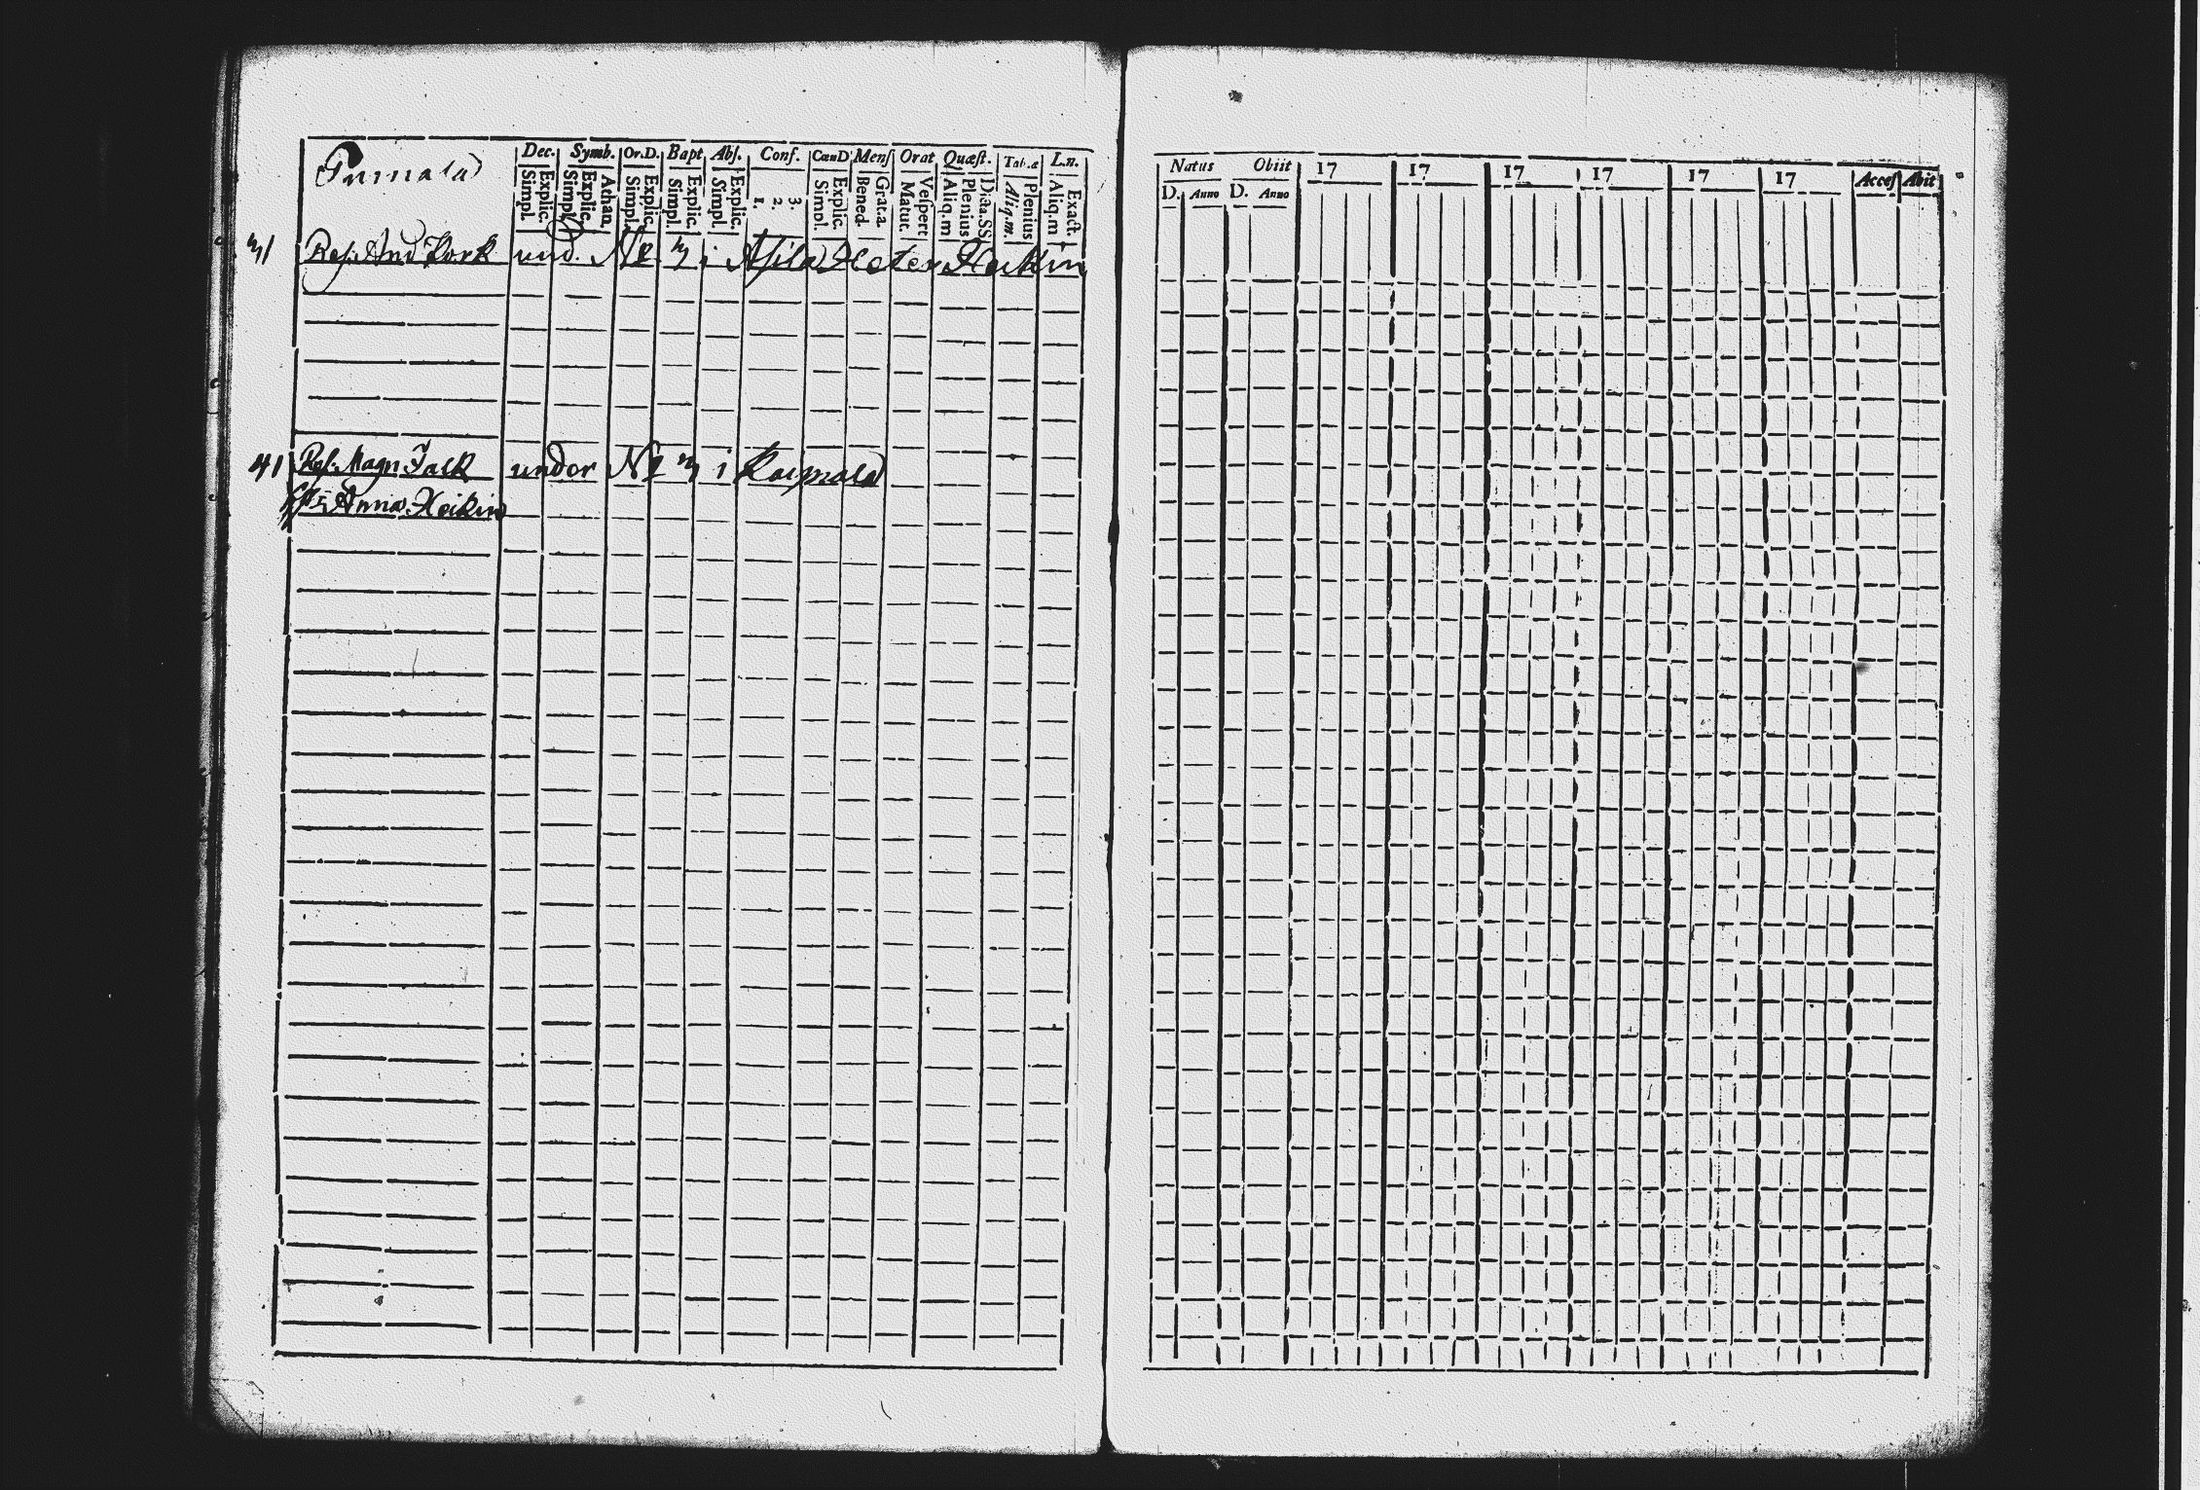 Dec. Symb. Or.D. Bapt Abſ. Conf. CœnD Menſ Orat Quæſt. Tab.œ L.n.
Explic. Simpl. Athan. Explic. Simpl. Explic. Simpl. Explic. Simpl. Explic. Simpl. 3. 2. 1. Explic. Simpl. Grat.a. Bened. Veſpert Matut. Dicta.SS Plenius Aliq.m Plenius Aliq.m. Exact. Aliq.m
3/ Ref. And. Pork und. No 3 i Heikin
4/ Ref. Magn Falk under No 3 i
Anna Heikin
Natus Obiit 17 17 17 17 17 17 Acceſ Abit
D. Anno D. Anno